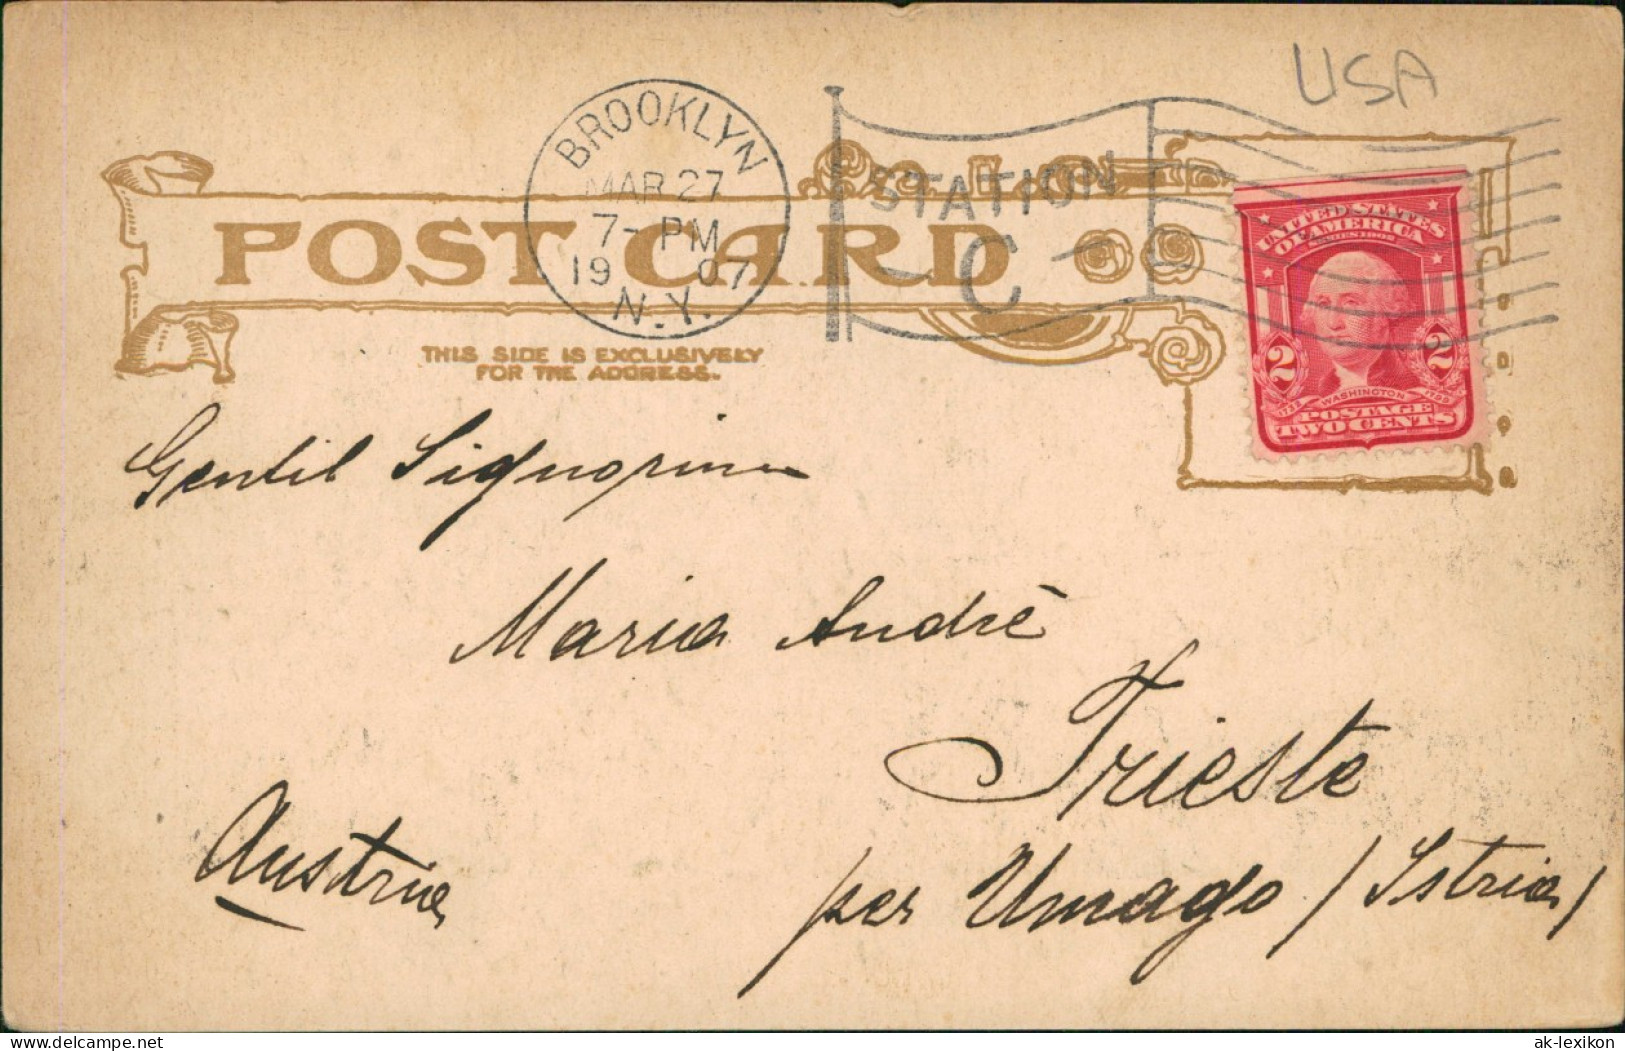 USA
BROOKLYN
MAR 27
7- PM
19 07
N.Y.
STATION
C
POST CARD
THIS SIDE IS EXCLUSIVELY
FOR THE ADDRESS.
UNITED STATES
OF AMERICA
SERIES 1902
2 2
1732 WASHINGTON 1799
POSTAGE
TWO CENTS
Gentil Signorina
Maria Andrè
Trieste
Austria
per Umago / Istria /
delcampe.net
ak-lexikon